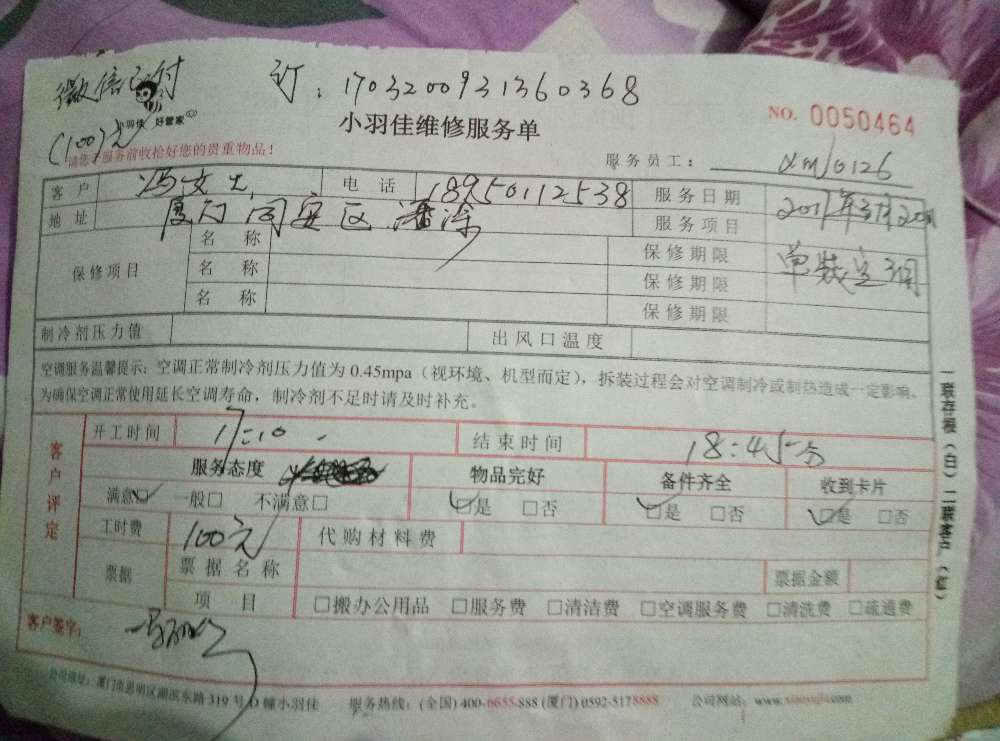 微信已付 订：17032009313603​68
(100)元
小羽佳 好管家
小羽佳维修服务单
NO. 0050464
请您于服务前收拾好您的贵重物品！
服务员工： xm10126
客户 冯文 电话 18950112538 服务日期
地址 厦门同安区 服务项目 单装空调
保修项目 名称 保修期限
名称 保修期限
名称 保修期限
制冷剂压力值 出风口温度
空调服务温馨提示：空调正常制冷剂压力值为 0.45mpa（视环境、机型而定），拆装过程会对空调制冷或制热造成一定影响。
为确保空调正常使用延长空调寿命，制冷剂不足时请及时补充。
客户评定
开工时间 17:10 结束时间 18:45分
服务态度 物品完好 备件齐全 收到卡片
满意☑ 一般□ 不满意□ ☑是 □否 ☑是 □否 ☑是 □否
工时费 100元 代购材料费
票据 票据名称 票据金额
项目 □搬办公用品 □服务费 □清洁费 □空调服务费 □清洗费 □疏通费
客户签字：
公司地址：厦门市思明区湖滨东路 319 号 D 幢小羽佳 服务热线：(全国) 400-6655-888 (厦门) 0592-5178888 公司网站：
一联存根（白）二联客户（红）